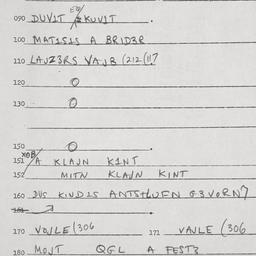 090 DUVIT EB/A KUVIT.
100 MATISIS A BRID3R
110 LAUZ3RS VAJB (212(117
120 0
130 0
150 0
151 XOB/A KLAJN KINT
152 MITN KLAJN KINT
160 DUS KINDIS G3VORN7
161
170 VAJLE(306 171 VAJLE (306
180 MOJT QGL A FEST3